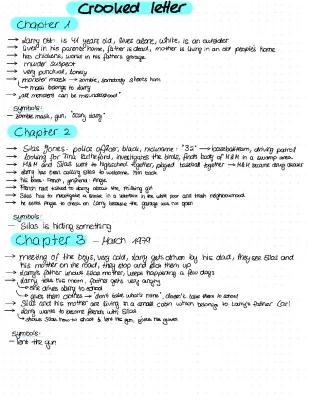 Crooked letter
Chapter 1
→ Larry Ott: is 41 years old, lives alone, white, is an outsider
→ lives in his parents home, father is dead, mother is living in an old people's home
→ has chickens, works in his father's garage
→ murder suspect
→ very punctual, lonely
→ monster mask → zombie, somebody shoots him
↳ mask belongs to Larry
→ "all monsters can be misunderstood"
Symbols:
- zombie mask, gun, "scary Larry"
Chapter 2
→ Silas Jones: police officer, black, nickname: "32" → baseballteam, driving patrol
→ looking for Tina Rutherford, investigates the birds, finds body of M&M in a swamp area
→ M&M and Silas went to highschool together, played baseball together → M&M became drug dealer
→ Larry has been calling Silas to welcome him back
→ his boss: French, girlfriend: Angie
→ French had talked to Larry about the missing girl
→ Silas has to investigate a snake in a letterbox in the white poor and trash neighbourhood
→ he sends Angie to check on Larry because the garage was not open
Symbols:
- Silas is hiding something
Chapter 3 - March 1979
→ meeting of the boys, very cold, Larry gets driven by his dad, they see Silas and
his mother on the road, they stop and pick them up
→ Larry's father knows Silas mother, keeps happening a few days
→ Larry tells his mom, father gets very angry
↳ she drives Larry to school
↳ gives them clothes → "don't take other's mine", doesn't take them to school
→ Silas and his mother are living in a small cabin which belongs to Larry's father Carl
→ Larry wants to become friends with Silas
↳ shows Silas how to shoot & lent the gun, gives the gloves
Symbols:
- lent the gun